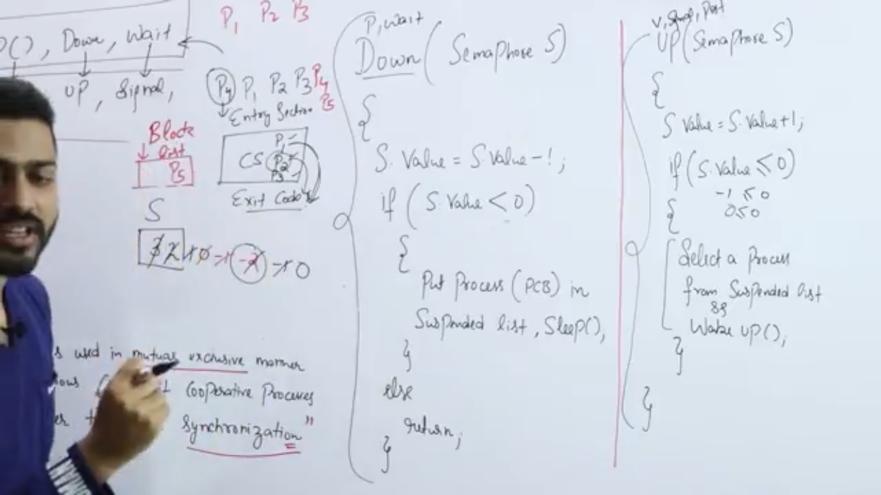 P(), Down, Wait
UP, Signal,
P1 P2 P3
P4 P1 P2 P3 P4
P5
Entry Section
Block
list
P5
CS
P1
P2
P3
Exit Code
S
used in mutual exclusive manner
Cooperative Processes
Synchronization"
P, Wait
Down (Semaphore S)
{
S. Value = S.Value - 1;
if (S.Value < 0)
{
Put Process (PCB) in
Suspended list, Sleep();
}
else
return;
}
UP (Semaphore S)
{
S Value = S.Value+1;
if (S.Value ≤ 0)
-1 ≤ 0
0 ≤ 0
{
Select a Process
from Suspended list
Wake UP();
}
}